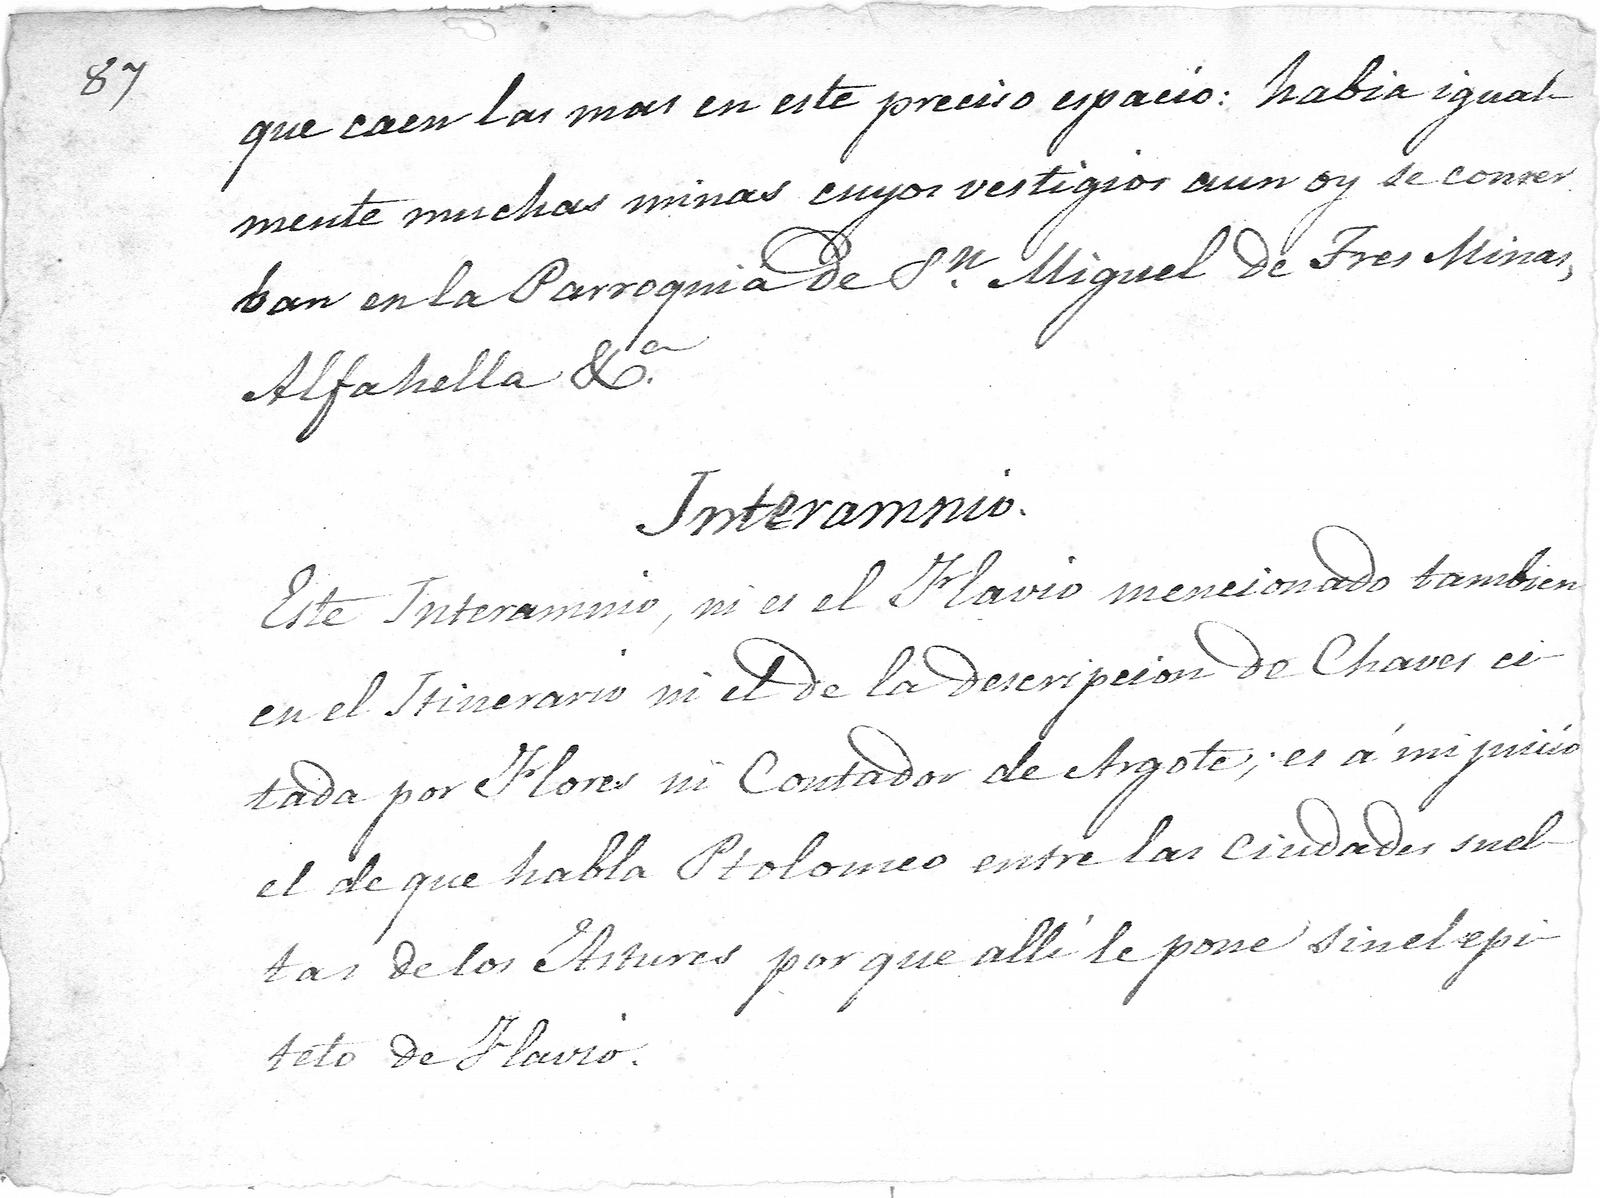 87
que caen las mas en este preciso espacio: habia igual-
mente muchas minas cuyos vestigios aun oy se conser
ban en la Parroquia de Sn. Miguel de Tres Minas,
Alfahella &.a
Interamnio.
Este Interamnio, ni es el Flavio mencionado tambien
en el Itinerario ni el de la descripcion de Chaves ci-
tada por Flores ni Contador de Argote; es á mi juicio
el de que habla Ptolomeo entre las Ciudades suel-
tas de los Astures por que allí le pone sin el epi-
teto de Flavio.